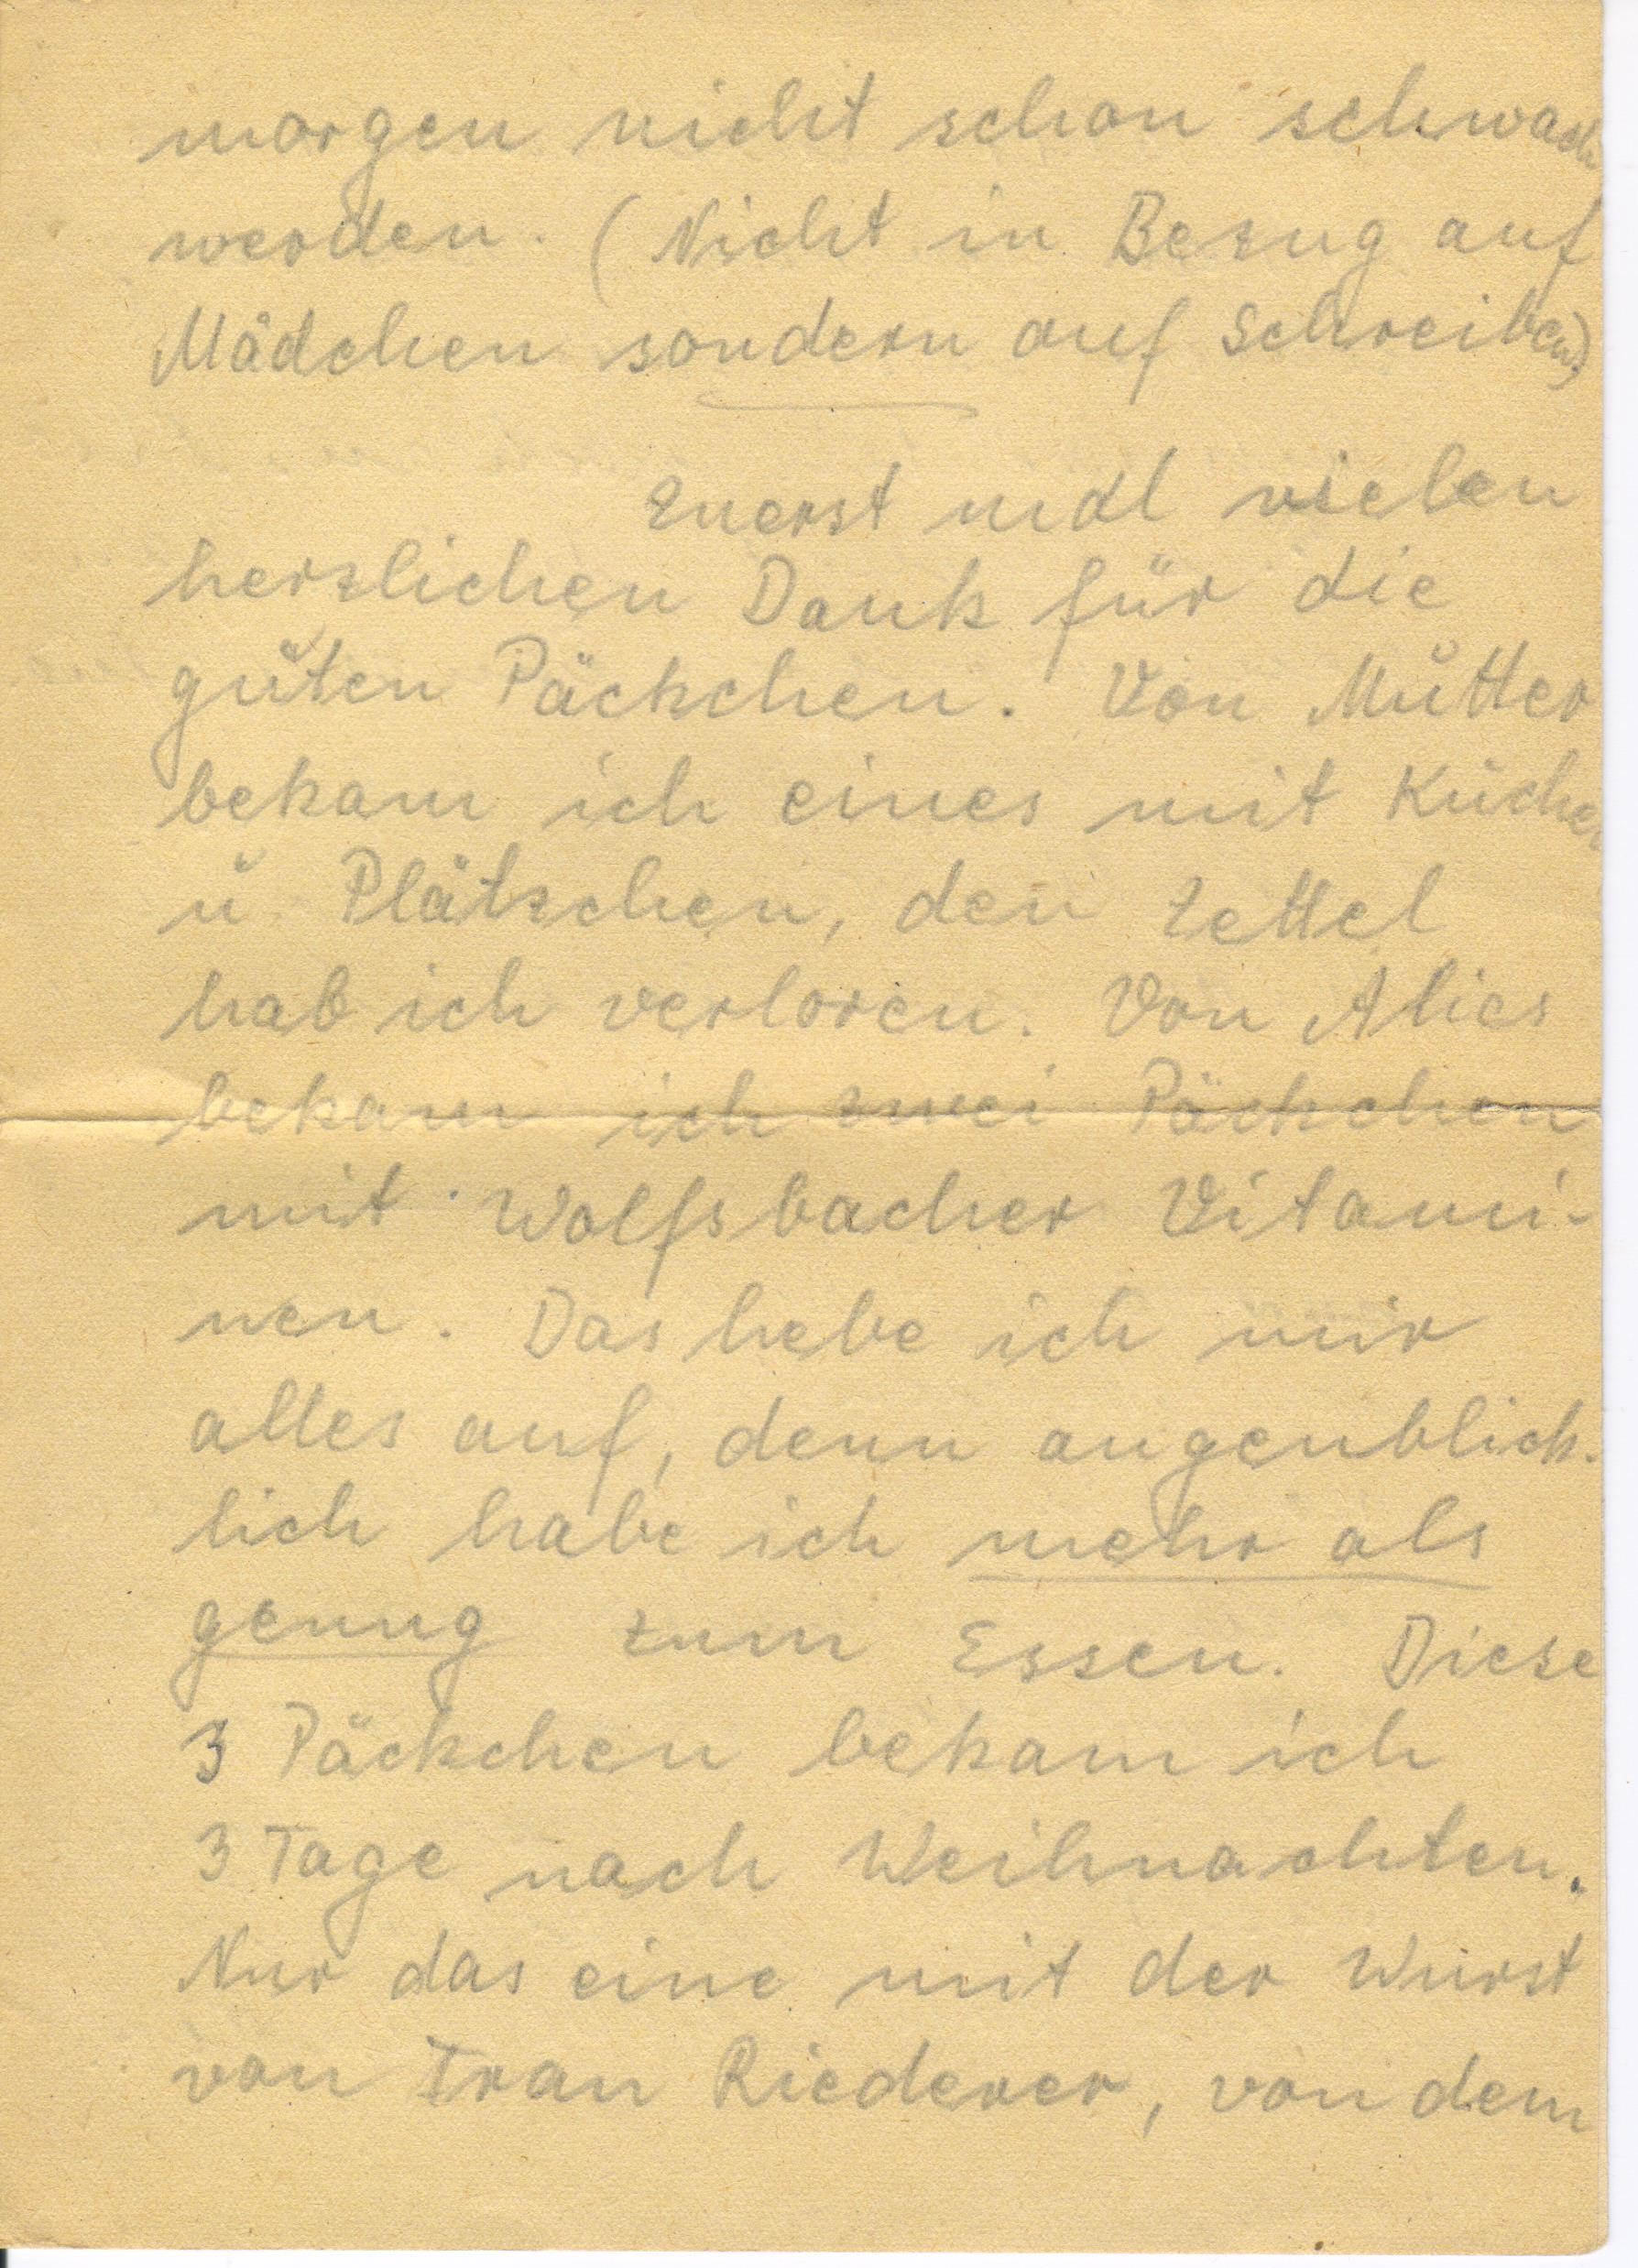 morgen nicht schon schwach
werden. (Nicht in Bezug auf
Mädchen sondern auf Schreiben.)
Zuerst mal vielen
herzlichen Dank für die
guten Päckchen. Von Mutter
bekam ich eines mit Kuchen
u Plätzchen, den Zettel
hab ich verloren. Von Alies
bekam ich zwei Päckchen
mit Wolfsbacher Vitami-
nen. Das hebe ich mir
alles auf, denn augenblick-
lich habe ich mehr als
genug zum Essen. Diese
3 Päckchen bekam ich
3 Tage nach Weihnachten.
Nur das eine mit der Wurst
von Frau Riederer, von dem